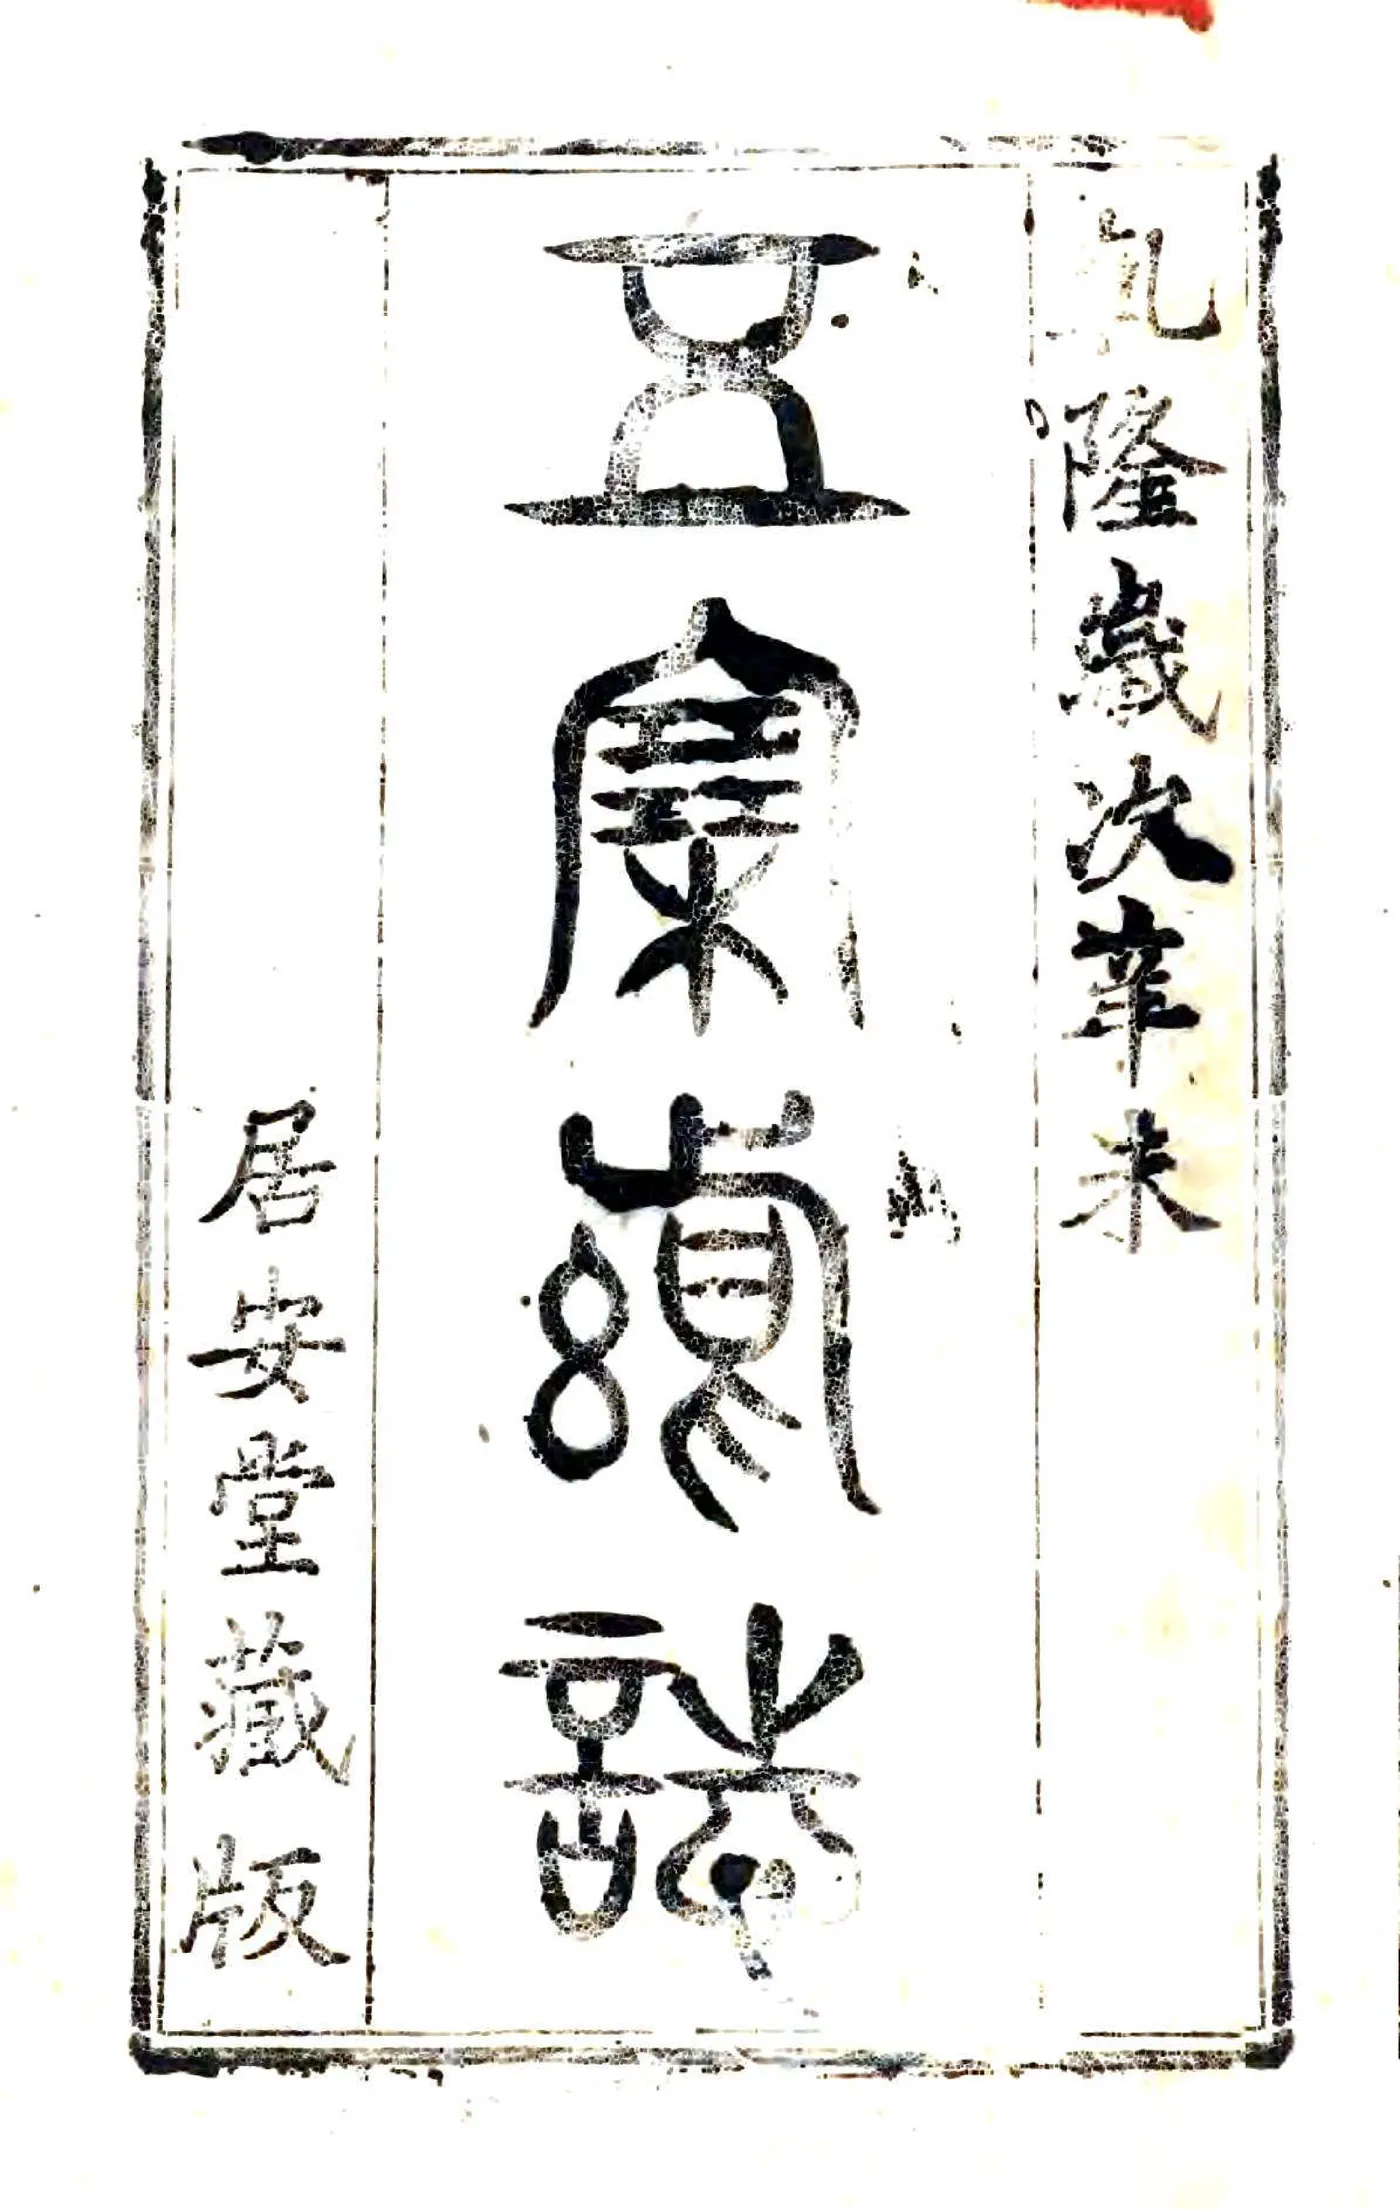 乾隆歲次辛未
五寨縣誌
居安堂藏版